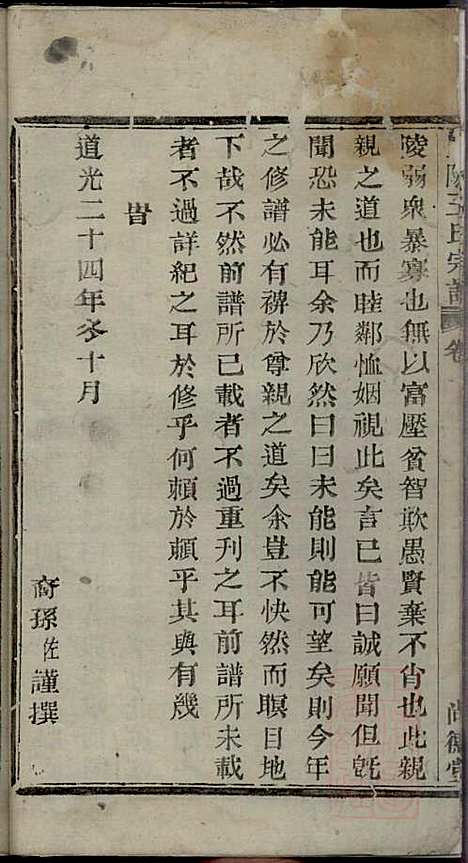 陵弱眾暴寡也無以富壓貧智欺愚賢棄不肖也此親
親之道也而睦鄰恤姻視此矣言已皆曰誠願聞但旣
聞恐未能耳余乃欣然曰曰未能則能可望矣則今年
之修譜必有裨於尊親之道矣余豈不快然而瞑目地
下哉不然前譜所已載者不過重刊之耳前譜所未載
者不過詳紀之耳於修乎何賴於頼乎其與有幾
旹
道光二十四年冬十月
裔孫佐謹撰
王氏宗譜 卷
尚德堂